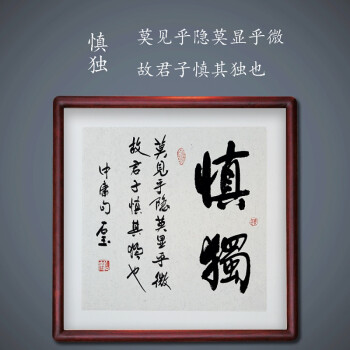 慎独
莫见乎隐莫显乎微
故君子慎其独也
慎獨
莫見乎隐莫显乎微
故君子慎其獨也
中庸句